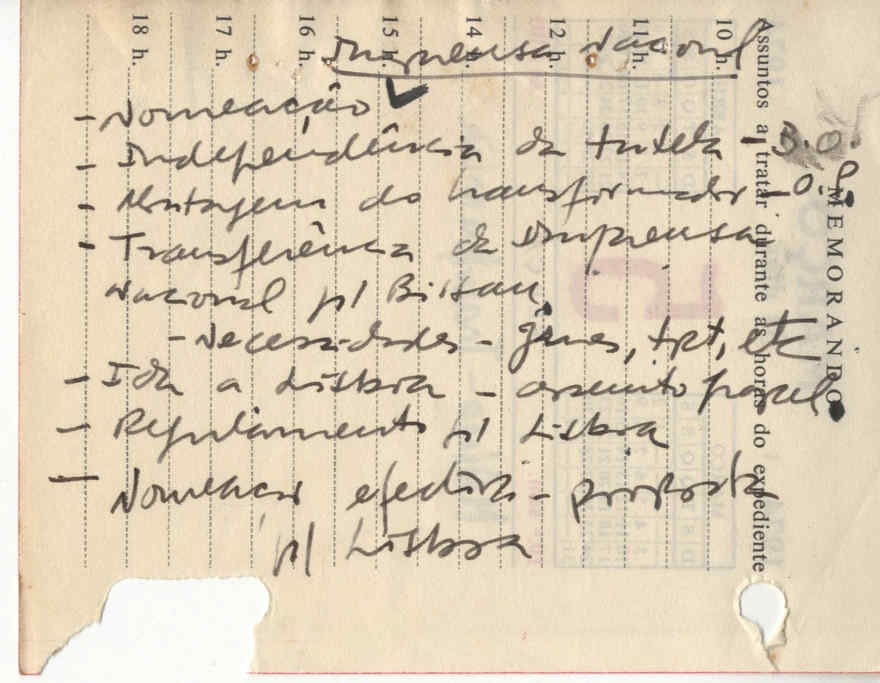 Imprensa Nacional
- Nomeação ✓
- Independência da tutela - B.O.
- Montagem do transformador - O.P.
- Transferência da Imprensa
Nacional p/ Bissau
- Necessidades - géneros, trpt, etc
- Ida a Lisboa - assunto
- Regulamento p/ Lisboa
- Nomeação efectiva - proposta
p/ Lisboa
MEMORANDO
Assuntos a tratar durante as horas do expediente
10 h.
11 h.
12 h.
14 h.
15 h.
16 h.
17 h.
18 h.